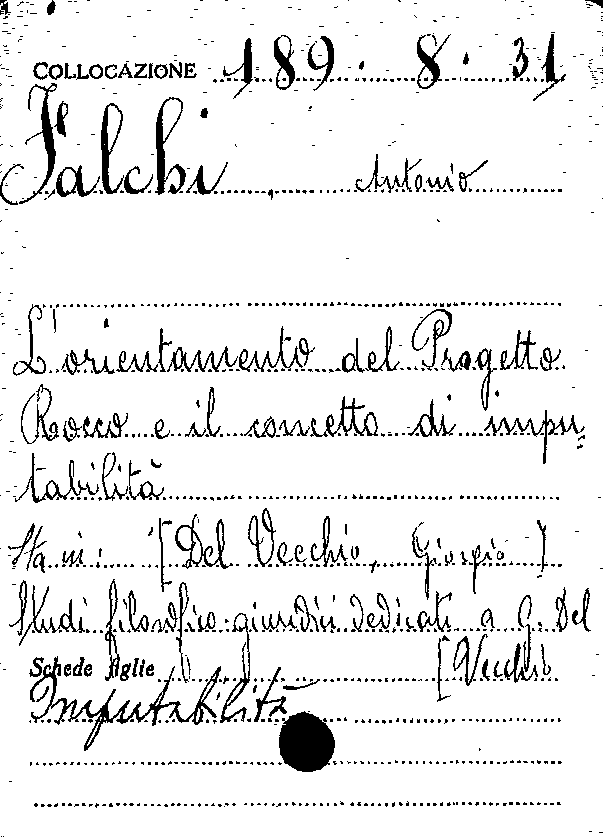 COLLOCAZIONE 189. 8. 31
Falchi, Antonio
L'orientamento del Progetto
Rocco e il concetto di impu=
tabilità
Sta in: [Del Vecchio, Giorgio]
Studi filosofico-giuridici dedicati a G. Del
[Vecchio
Schede figlie
Imputabilità